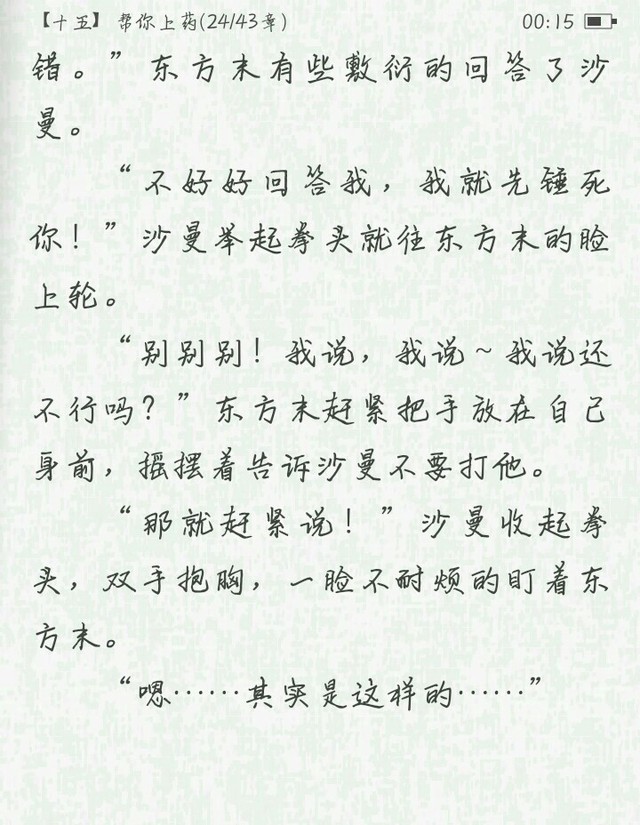 【十五】帮你上药(24/43章) 00:15
错。”东方末有些敷衍的回答了沙
曼。
“不好好回答我，我就先锤死
你！”沙曼举起拳头就往东方末的脸
上轮。
“别别别！我说，我说~我说还
不行吗？”东方末赶紧把手放在自己
身前，摇摆着告诉沙曼不要打他。
“那就赶紧说！”沙曼收起拳
头，双手抱胸，一脸不耐烦的盯着东
方末。
“嗯……其实是这样的……”